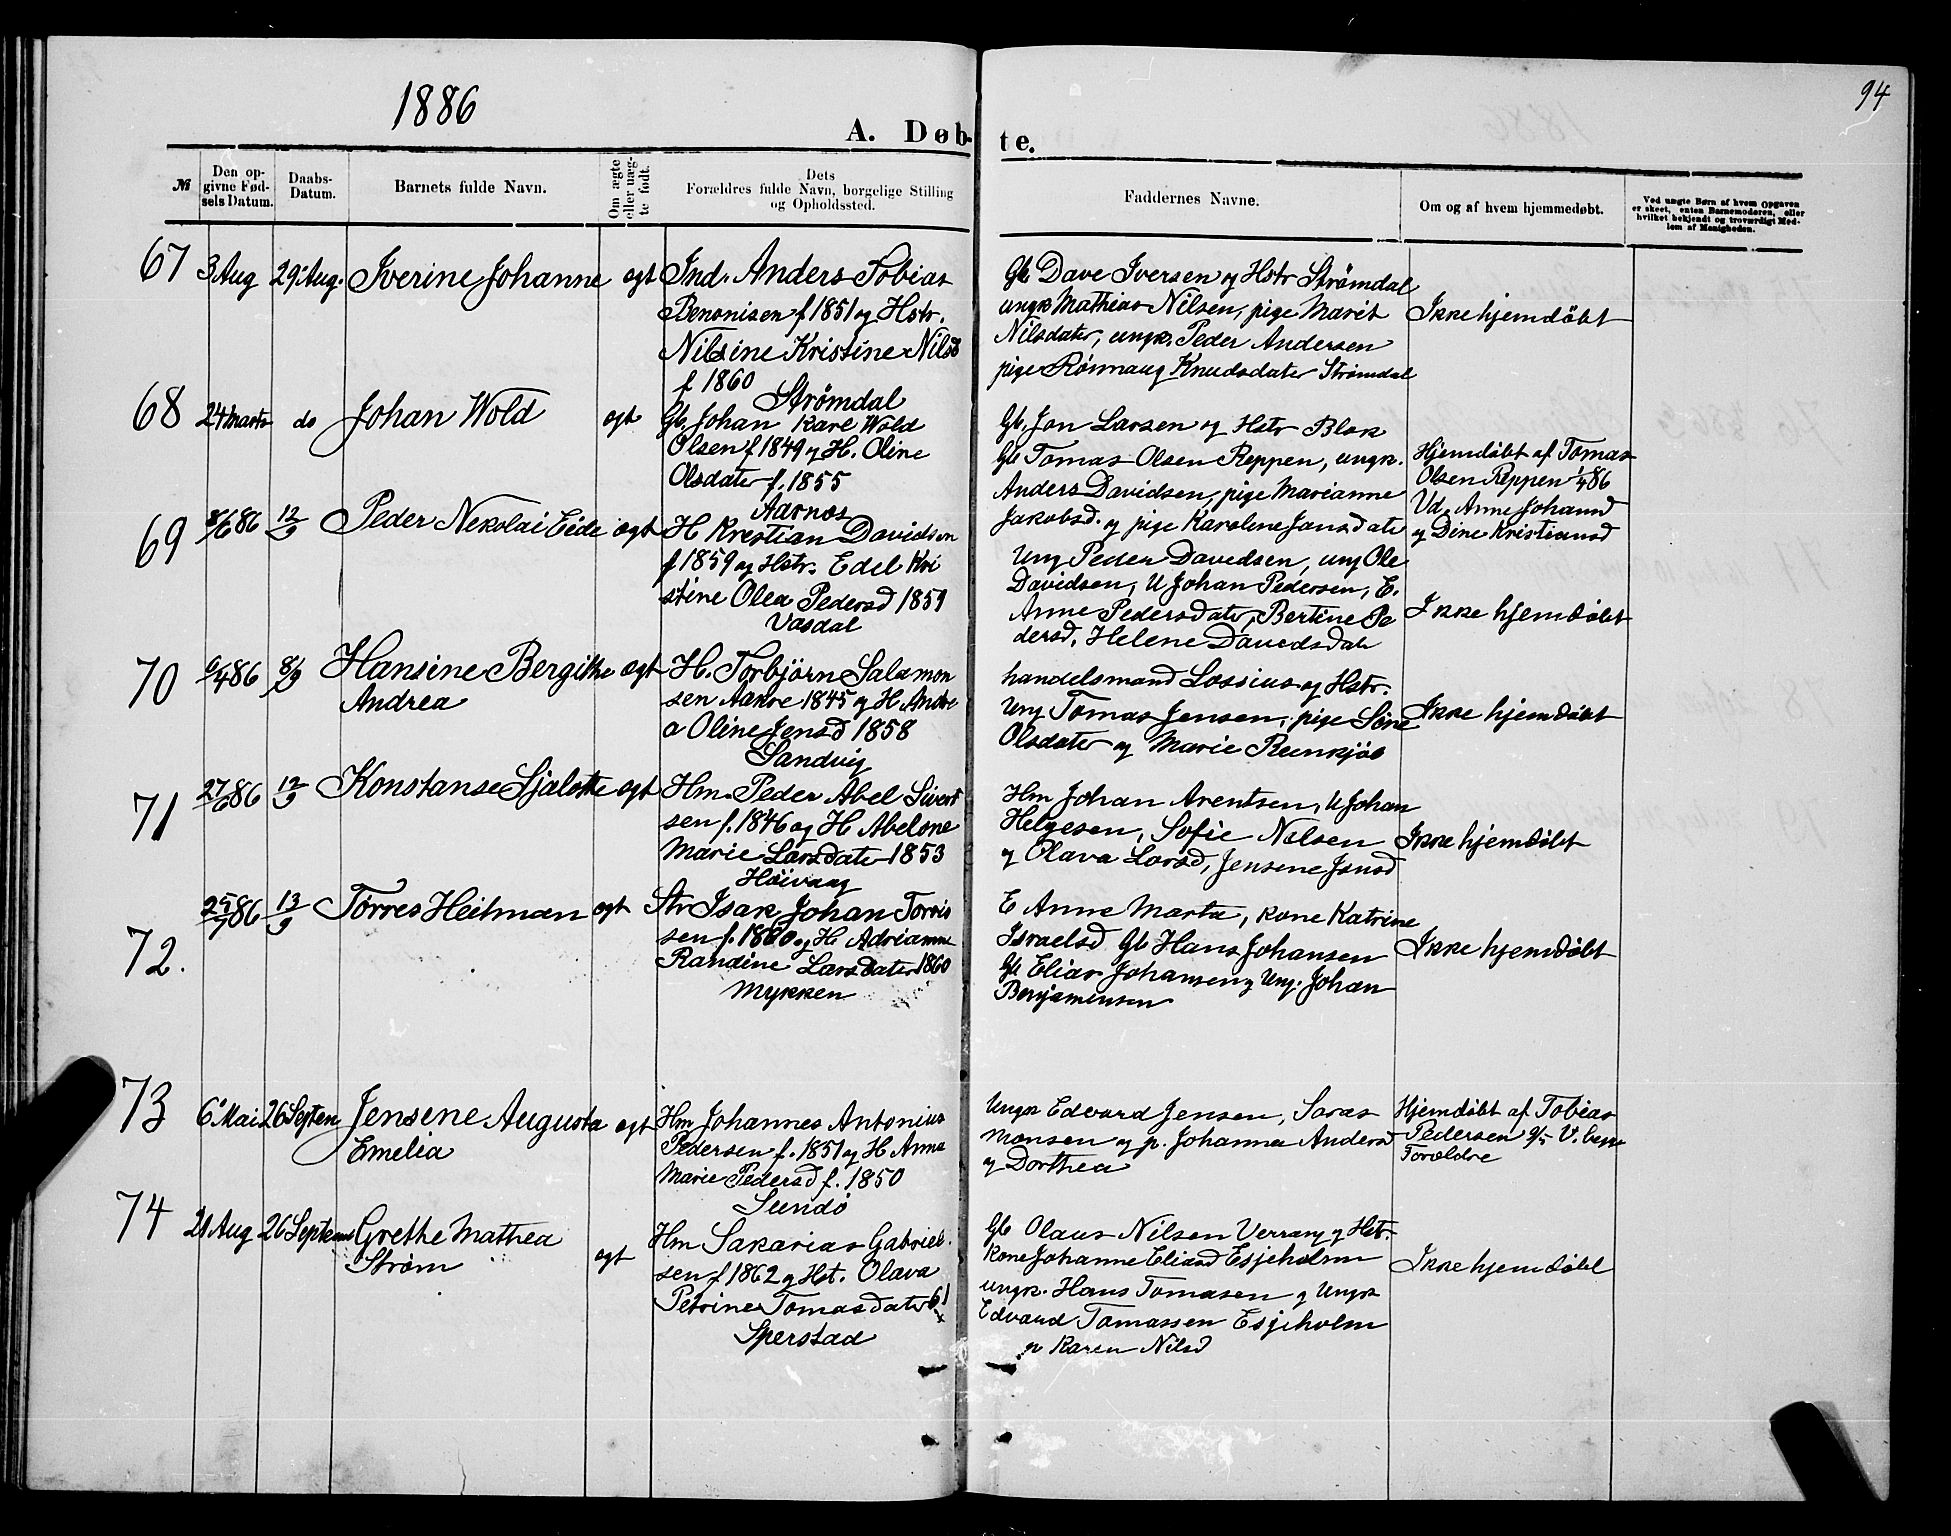 1886
94
A. Døb-te.
№
Den op-
givne Fød-
sels Datum.
Daabs-
Datum.
Barnets fulde Navn.
Om ægte
eller uæg-
te født.
Dets
Forældres fulde Navn, borgelige Stilling
og Opholdssted.
Faddernes Navne.
Om og af hvem hjemmedøbt.
Ved uægte Børn af hvem Opgaven
er skeet, enten Barnemoderen, eller
hvilket bekjendt og troværdigt Med-
lem af Menigheden.
67 3 Aug 29 Aug. Iverine Johanne ægt
Ind. Anders Tobias
Benonisen f 1851 og Hstr.
Nilsine Kristine Nilsd
f 1860
Strømdal
Gb Dave Iversen og Hstr Strømdal
ungk Mathias Nilsen, pige Marit
Nilsdater, ungk. Peder Andersen
pige Rønnaug Knudsdater Strømdal
Ikke hjemdöbt
68 24 Marts do Johan Wold ægt
Gb. Johan Karl Wold
Olsen f 1849 og H. Oline
Olsdater f. 1855
Aarnes
Gb. Jon Larsen og Hstr Blok
Gb Tomas Olsen Reppen, ungk.
Anders Davidsen, pige Marianne
Jakobsd. og pige Karoline Jansdater
Hjemdöbt af Tomas
Olsen Reppen 1/4 86
Vd. Anne Johansd
og Dine Kristiansd
69 8/6 86 12/9 Peder Nekolai Eide ægt
H Krestian Davidsen
f 1859 og Hstr. Edel Kri
stine Olea Pedersd 1859
Vasdal
Ung Peder Davidsen, ung Ole
Davidsen, U Johan Pedersen, E.
Anne Pedersdater, Bertine Pe
dersd, Helene Davedsdat
Ikke hjemdöbt
70 6/4 86 8/9 Hansine Bergitte ægt
Andrea
H. Torbjörn Salamon
sen Aakre 1845 og H Andre
a Oline Jensd 1858
Sandvig
handelsmand Lossius og Hstr.
Ung Tomas Jensen, pige Sine
Olsdater og Marie Reinkjöe
Ikke hjemdöbt
71 27/6 86 12/9 Konstanse Sjalotte ægt
Hm. Peder Abel Sivert
sen f. 1846 og H Abelone
Marie Larsdater 1853
Höivaag
Hm Johan Arentsen, U Johan
Helgesen, Sofie Nilsen
og Olava Larsd, Jensene Jansd
Ikke hjemdöbt
72. 25/7 86 13/9 Torres Heitman ægt
Str Isak Johan Torris
sen f. 1860 og H Adrianne
Randine Larsdater 1860
Mykken
E Anne Marta, kone Katrine
Israelsd Gb Hans Johansen
Gb Elias Johansen og Ung. Johan
Benjamensen
Ikke hjemdöbt
73 6 Mai 26 Septem Jensene Augusta ægt
Emelia
Hm Johannes Antonius
Pedersen f. 1851 og H Anna
Marie Pedersd f. 1850
Sundö
Ungk Edvard Jensen, Saras
Monsen og p. Johanna Andersd
og Dorthea
Hjemdöbt af Tobias
Pedersen 9/5 V. begge
Forældre
74 21 Aug 26 Septem Grethe Mathea
Strøm ægt
Hm Sakarias Gabriel-
sen f 1862 og Hst. Olava
Petrine Tomasdater 61
Sperstad
Gb Olaus Nilsen Verrang og Hst.
Kone Johanne Eliasd Esjeholm
ungk. Hans Tomasen og Ungk
Edvard Tomassen Esjeholm
p Karen Nilsd
Ikke hjemdöbt